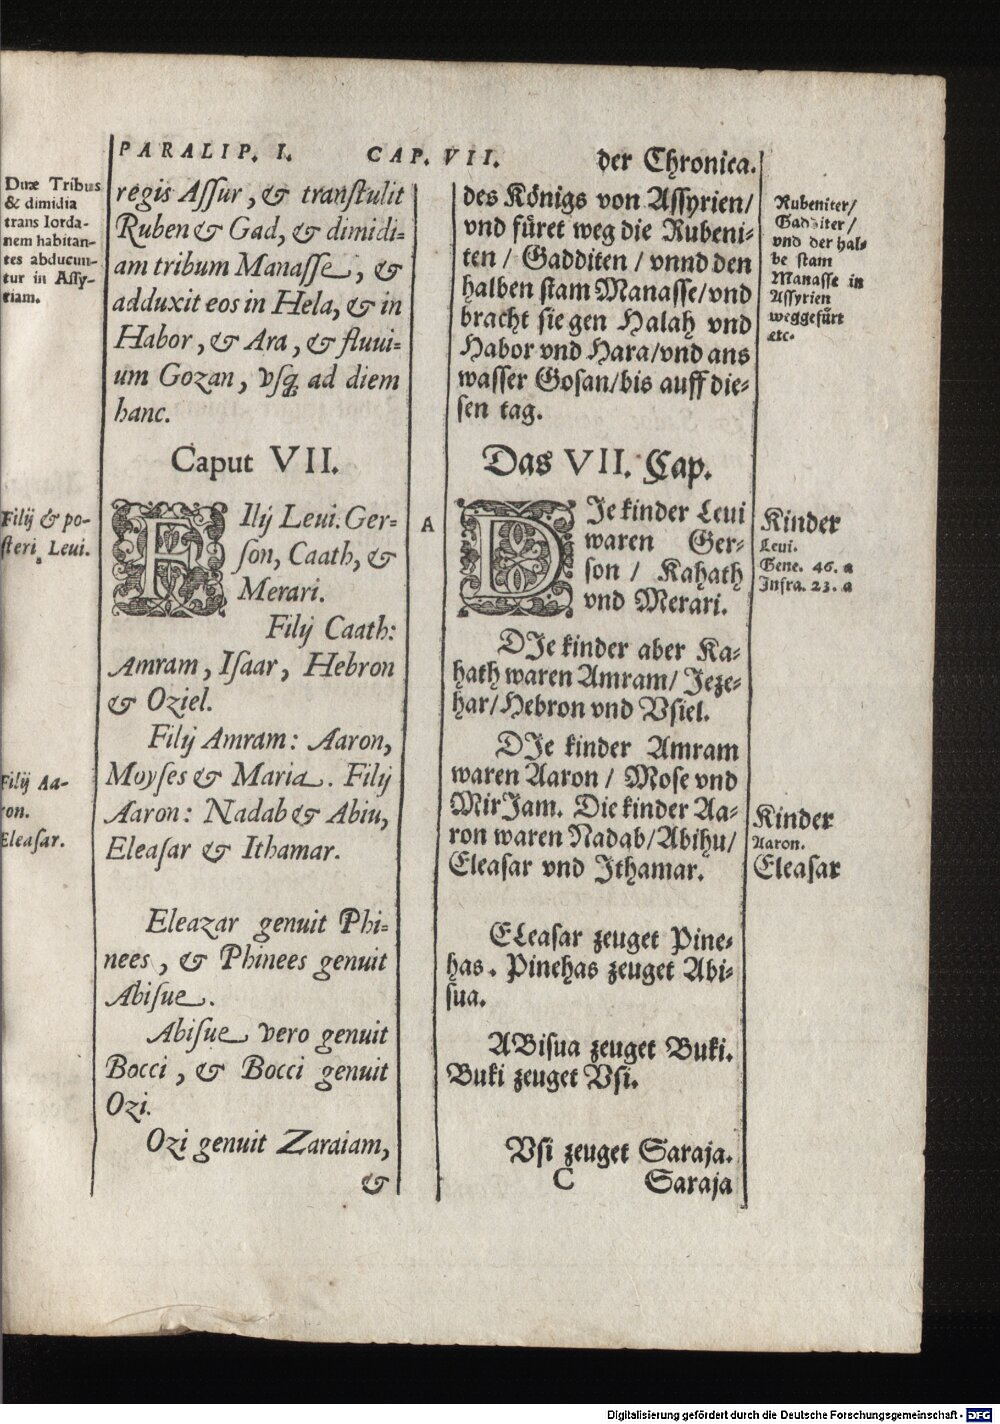 PARALIP. I. CAP. VII. der Chronica.
Duæ Tribus
& dimidia
trans Iorda-
nem habitan-
tes abducun-
tur in Assy-
riam.
regis Assur, & transtulit
Ruben & Gad, & dimidi-
am tribum Manasse, &
adduxit eos in Hela, & in
Habor, & Ara, & fluui-
um Gozan, vsq; ad diem
hanc.
Caput VII.
Filij & po-
steri Leui.
FIlij Leui. Ger-
son, Caath, &
Merari.
Filij Caath:
Amram, Isaar, Hebron
& Oziel.
Filij Amram: Aaron,
Moyses & Maria. Filij
Aaron: Nadab & Abiu,
Eleasar & Ithamar.
Filij Aa-
ron.
Eleasar.
Eleazar genuit Phi-
nees, & Phinees genuit
Abisue.
Abisue vero genuit
Bocci, & Bocci genuit
Ozi.
Ozi genuit Zaraiam,
&
des Königs von Assyrien/
vnd füret weg die Rubeni-
ten / Gadditen / vnnd den
halben stam Manasse/vnd
bracht sie gen Halah vnd
Habor vnd Hara/vnd ans
wasser Gosan/bis auff die-
sen tag.
Rubeniter/
Gadditer/
vnd der hal-
be stam
Manasse in
Assyrien
weggefürt
etc.
Das VII. Cap.
A
DIe kinder Leui
waren Ger-
son / Kahath
vnd Merari.
Kinder
Leui.
Gene. 46. a
Infra. 23. a
DIe kinder aber Ka-
hath waren Amram/ Jeze-
har/Hebron vnd Vsiel.
DIe kinder Amram
waren Aaron / Mose vnd
MirJam. Die kinder Aa-
ron waren Nadab/Abihu/
Eleasar vnd Ithamar.
Kinder
Aaron.
Eleasar
ELeasar zeuget Pine-
has. Pinehas zeuget Abi-
sua.
ABisua zeuget Buki.
Buki zeuget Vsi.
Vsi zeuget Saraja.
C Saraja
Digitalisierung gefördert durch die Deutsche Forschungsgemeinschaft - DFG